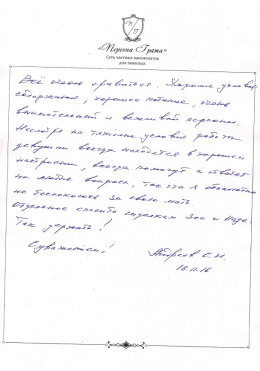 «Персона Грата»
Сеть частных пансионатов
для пожилых
Всё очень нравится. Хорошие условия
содержания, хорошее питание, очень
внимательный и вежливый персонал.
Несмотря на тяжелые условия работы
девушки всегда находятся в хорошем
настроении, всегда помогут и ответят
на любые вопросы, так что я абсолютно
не беспокоюсь за свою мать.
Отдельное спасибо сиделкам Зое и Наде.
Так держать!
С уважением!
Андреев С.Н.
16.11.16